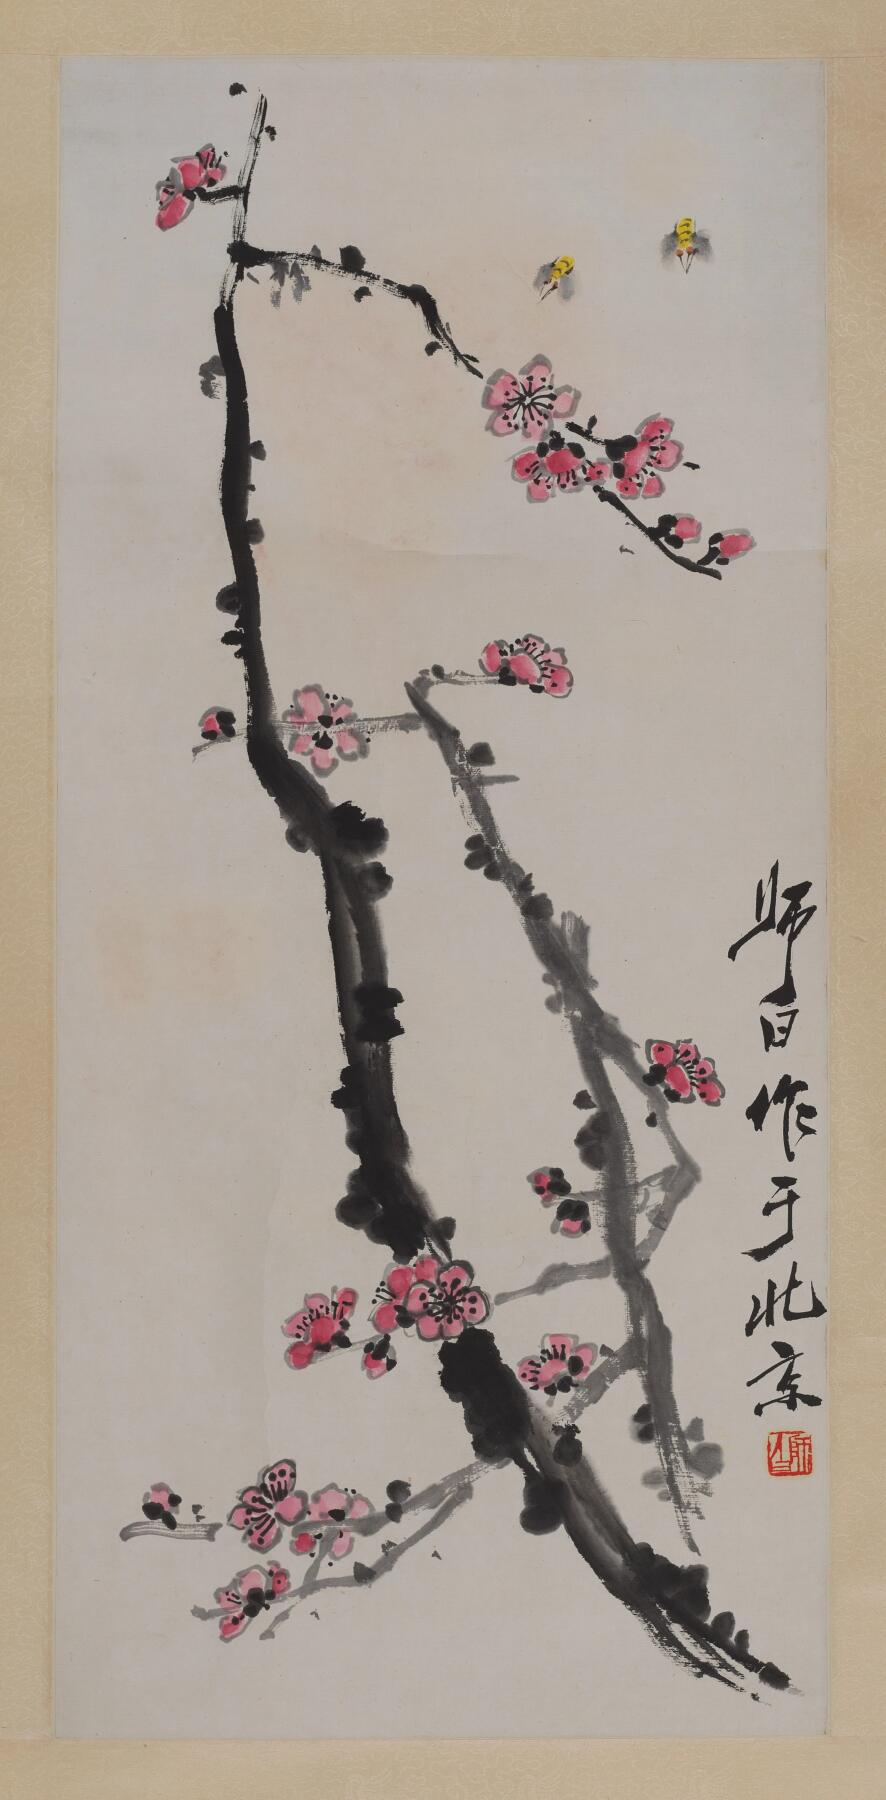 师白作于北京